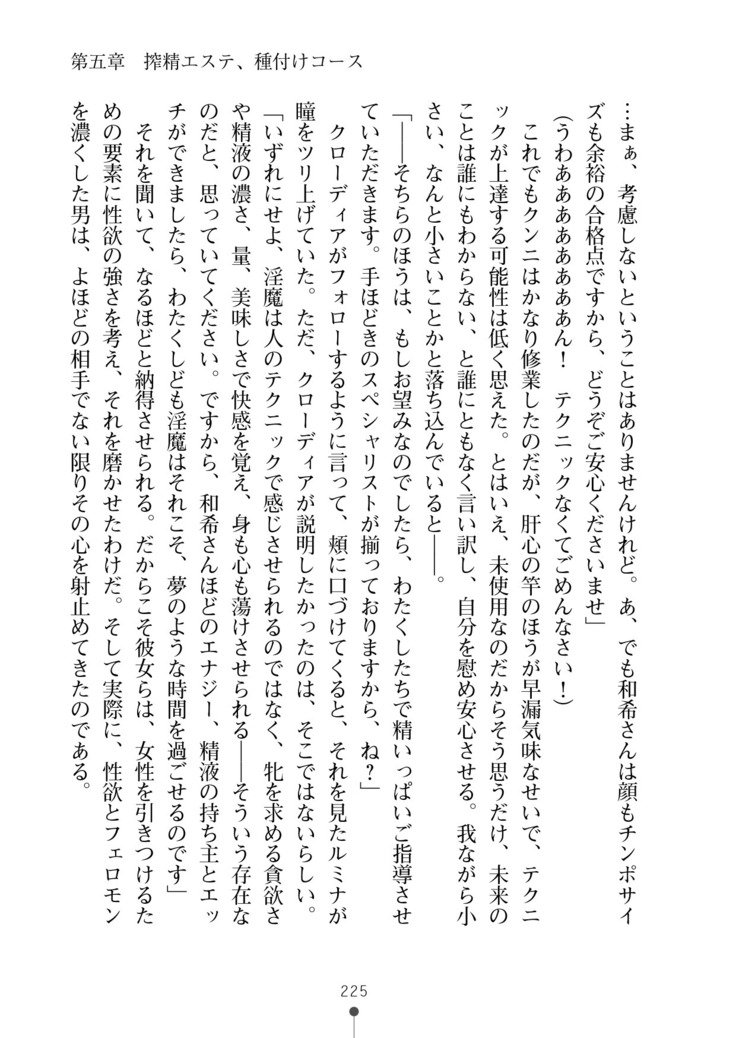 第五章　搾精エステ、種付けコース
…まぁ、考慮しないということはありませんけれど。あ、でも和希さんは顔もチンポサイ
ズも余裕の合格点ですから、どうぞご安心くださいませ」
（うわあああああああああん！　テクニックなくてごめんなさい！）
　これでもクンニはかなり修業したのだが、肝心の竿のほうが早漏気味なせいで、テクニ
ックが上達する可能性は低く思えた。とはいえ、未使用なのだからそう思うだけ、未来の
ことは誰にもわからない、と誰にともなく言い訳し、自分を慰め安心させる。我ながら小
さい、なんと小さいことかと落ち込んでいると――。
「――そちらのほうは、もしお望みなのでしたら、わたくしたちで精いっぱいご指導させ
ていただきます。手ほどきのスペシャリストが揃っておりますから、ね？」
　クローディアがフォローするように言って、頬に口づけてくると、それを見たルミナが
瞳をツリ上げていた。ただ、クローディアが説明したかったのは、そこではないらしい。
「いずれにせよ、淫魔は人のテクニックで感じさせられるのではなく、牝を求める貪欲さ
や精液の濃さ、量、美味しさで快感を覚え、身も心も蕩けさせられる――そういう存在な
のだと、思っていてください。ですから、和希さんほどのエナジー、精液の持ち主とエッ
チができましたら、わたくしども淫魔はそれこそ、夢のような時間を過ごせるのです」
　それを聞いて、なるほどと納得させられる。だからこそ彼女らは、女性を引きつけるた
めの要素に性欲の強さを考え、それを磨かせたわけだ。そして実際に、性欲とフェロモン
を濃くした男は、よほどの相手でない限りその心を射止めてきたのである。
225